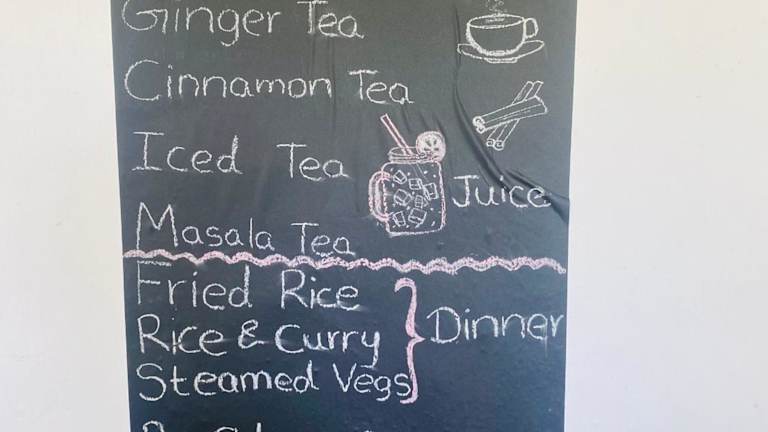 Ginger Tea
Cinnamon Tea
Iced Tea
Juice
Masala Tea
Fried Rice
Rice & Curry
Dinner
Steamed Vegs